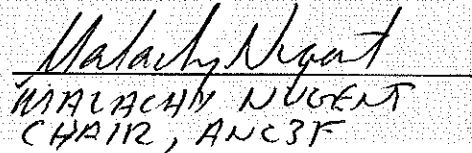 Malachy Nugent
MALACHY NUGENT
CHAIR, ANC3F